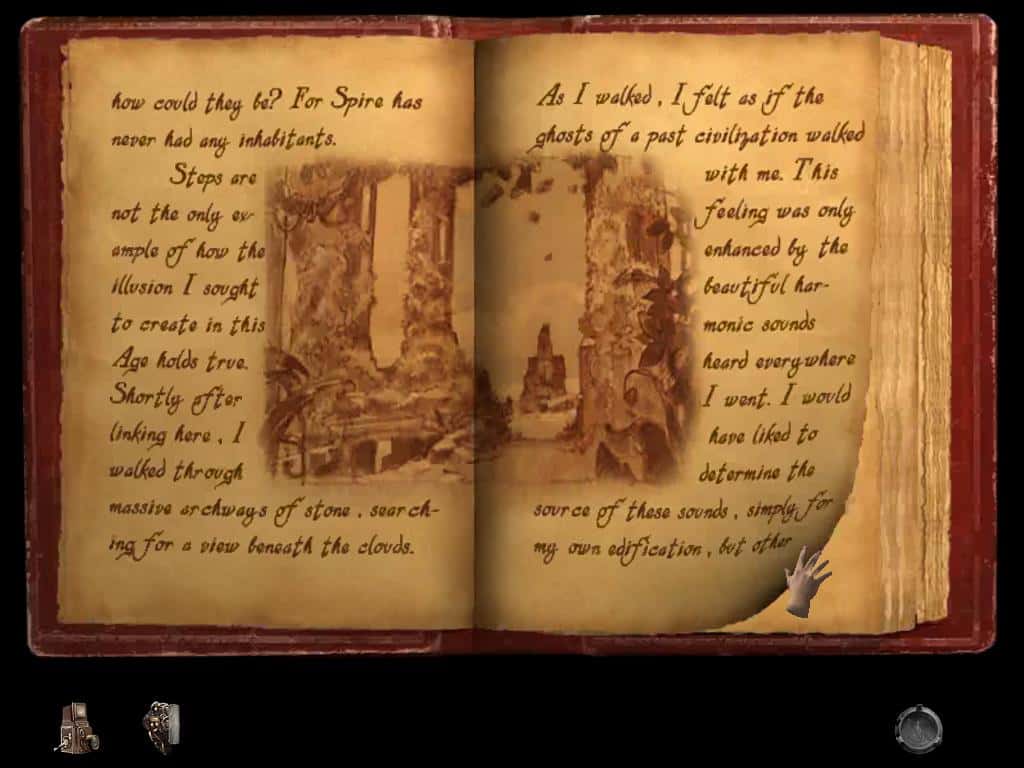 how could they be? For Spire has
never had any inhabitants.
Steps are
not the only ex-
ample of how the
illusion I sought
to create in this
Age holds true.
Shortly after
linking here, I
walked through
massive archways of stone, search-
ing for a view beneath the clouds.
As I walked, I felt as if the
ghosts of a past civilization walked
with me. This
feeling was only
enhanced by the
beautiful har-
monic sounds
heard everywhere
I went. I would
have liked to
determine the
source of these sounds, simply for
my own edification, but other